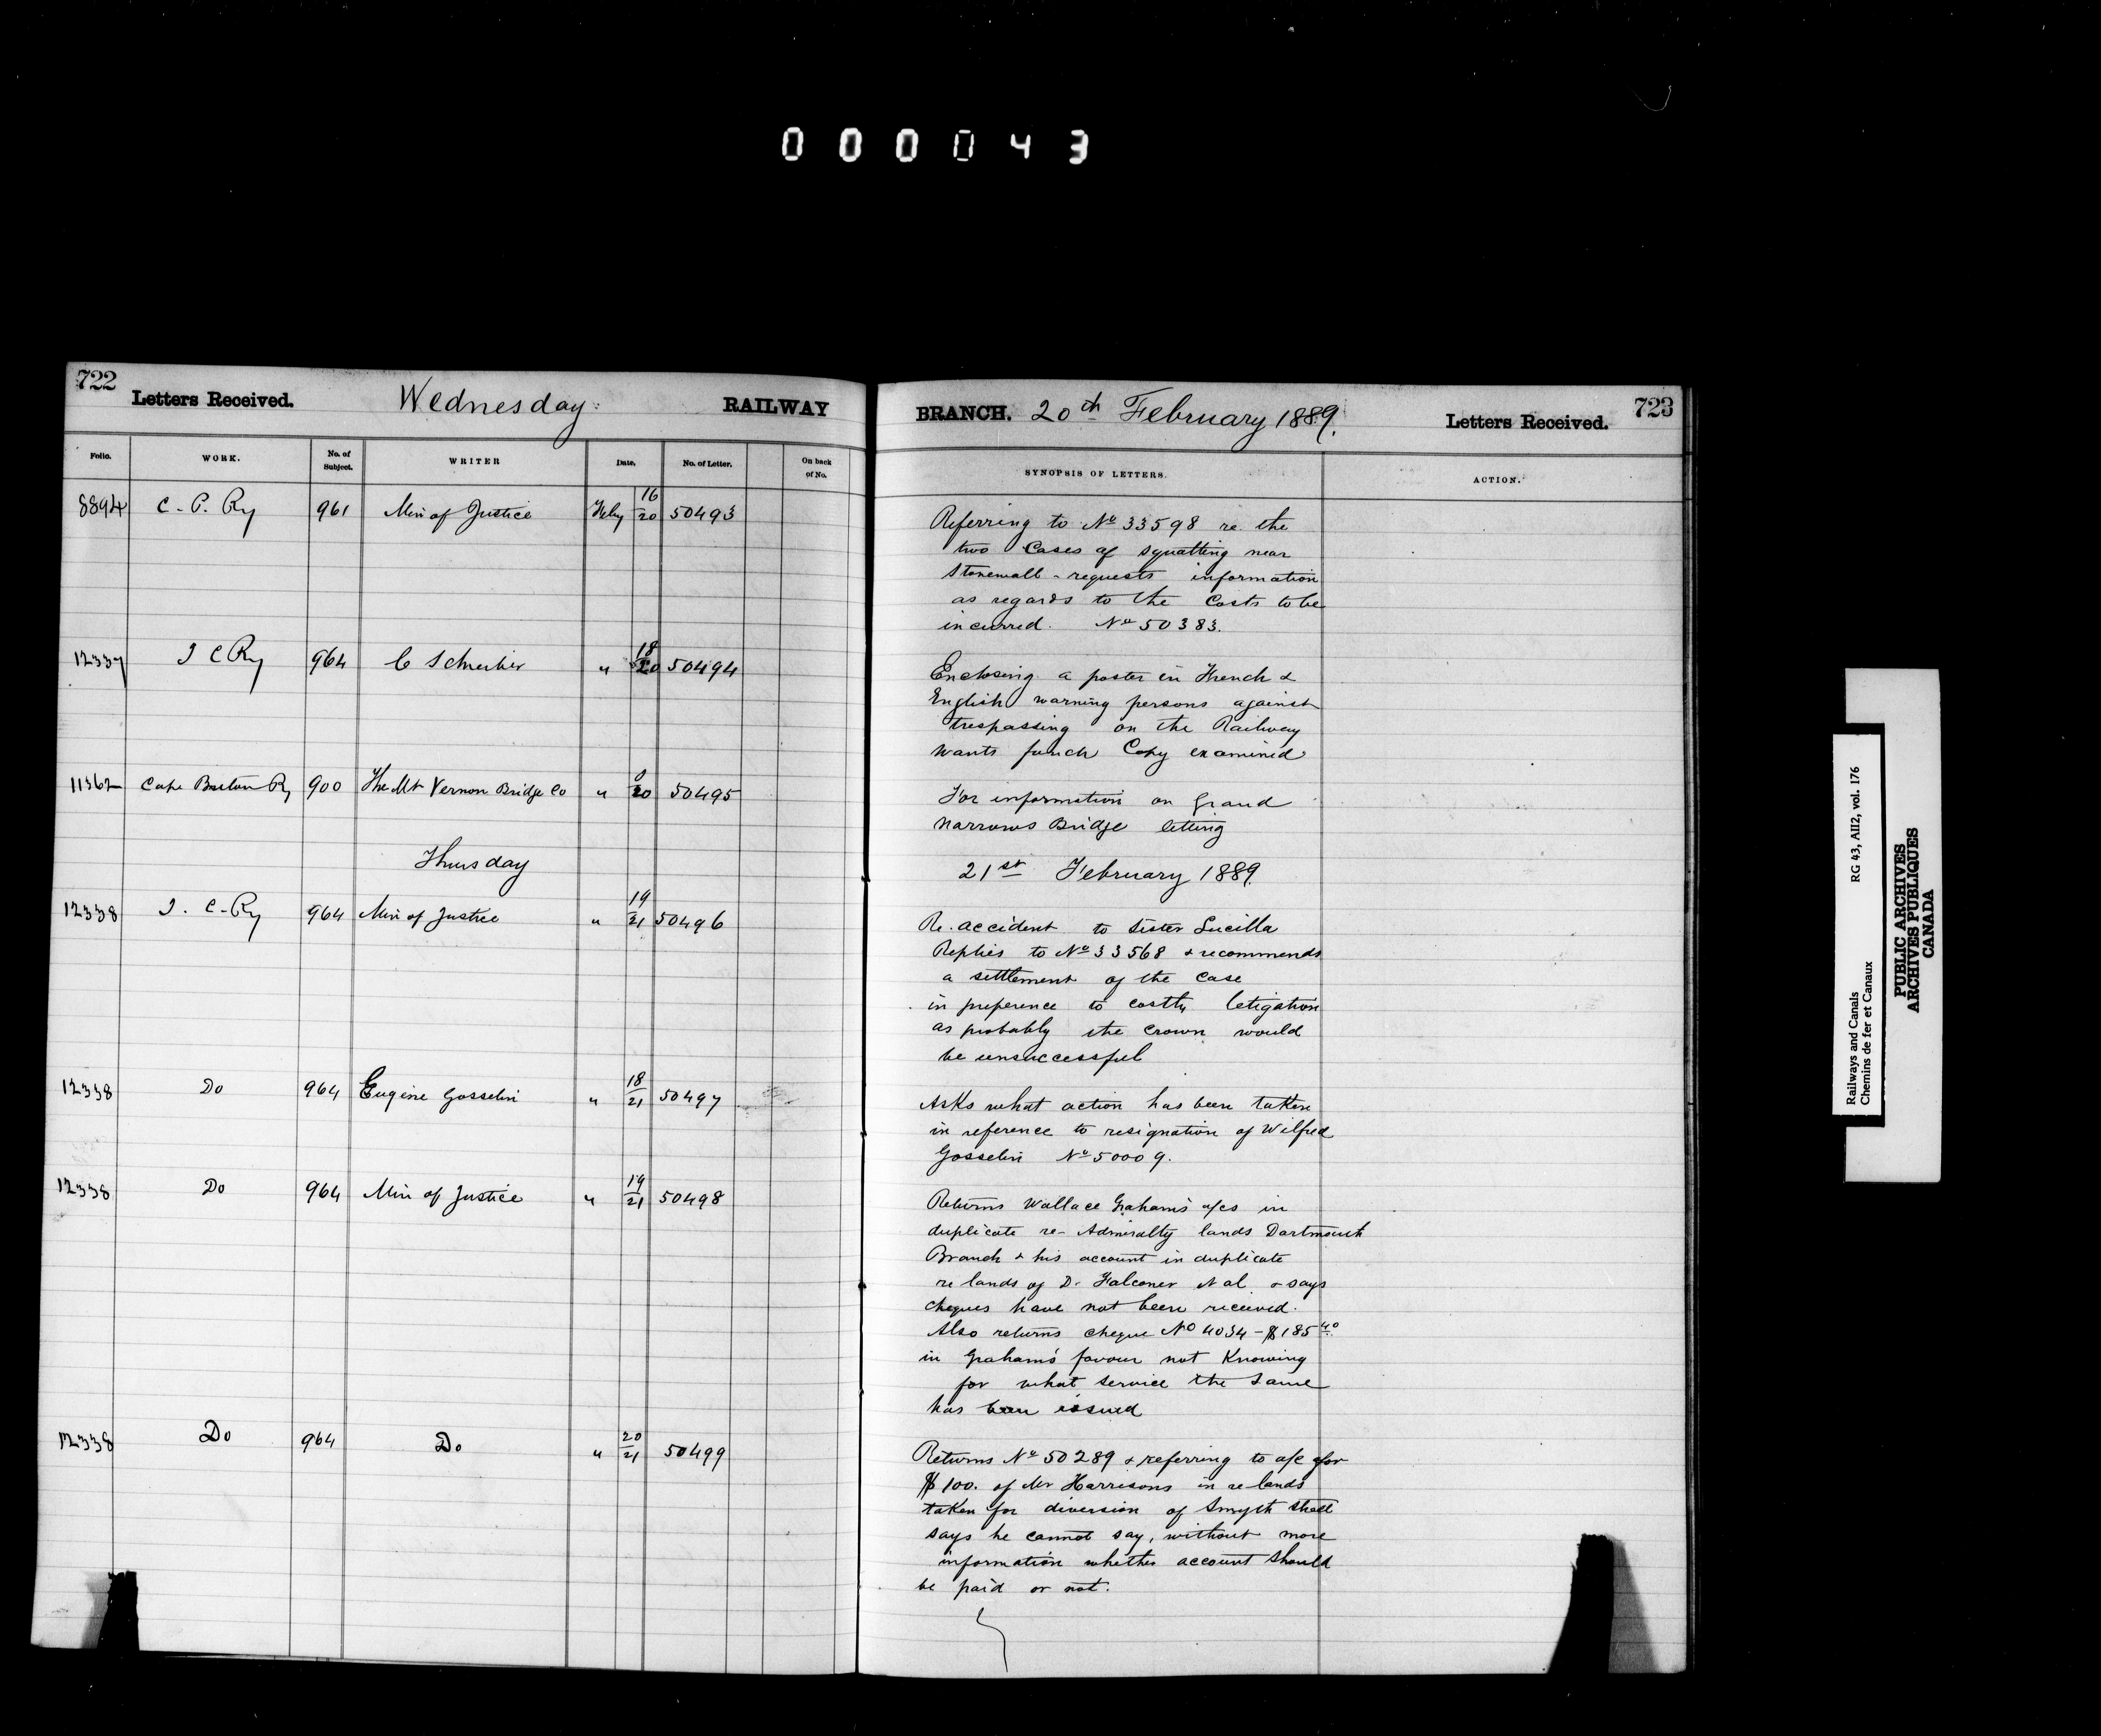 0 0 0 0 4 3
722
Letters Received.
Wednesday
RAILWAY
BRANCH.
20th February 1889.
Letters Received.
723
Folio.
WORK.
No. of Subject.
WRITER
Date.
No. of Letter.
On back of No.
SYNOPSIS OF LETTERS.
ACTION.
8894 C. P. Ry 961 Min of Justice Feby 16/20 50493
Referring to No 33598 re the
two Cases of squatting near
Stonewall - requests information
as regards to the Costs to be
incurred. No 50383.
12337 I C Ry 964 C Schreiber " 18/20 50494
Enclosing a poster in French &
English warning persons against
trespassing on the Railway
wants french Copy examined
11362 Cape Breton Ry 900 The Mt Vernon Bridge Co " 20 50495
For information on Grand
Narrows Bridge letting
Thursday
21st February 1889.
12338 I. C. Ry 964 Min of Justice " 19/21 50496
Re. accident to Sister Lucilla
Replies to No 33568 & recommends
a settlement of the Case
in preference to costly letigation
as probably the Crown would
be unsuccessful
12338 Do 964 Eugène Gosselin " 18/21 50497
Asks what action has been taken
in reference to resignation of Wilfred
Gosselin No 50009.
12338 Do 964 Min of Justice " 19/21 50498
Returns Wallace Graham's a/cs in
duplicate re- Admiralty lands Dartmouth
Branch & his account in duplicate
re lands of D. Falconer et al & says
cheques have not been received.
Also returns cheque No 4034 - $185 40
in Graham's favour not Knowing
for what service the same
has been issued
12338 Do 964 Do " 20/21 50499
Returns No 50289 & referring to a/c for
$100. of Mr Harrisons in re lands
taken for diversion of Smyth Street
says he cannot say, without more
information whether account should
be paid or not.
Railways and Canals RG 43, AII2, vol. 176
Chemins de fer et Canaux
PUBLIC ARCHIVES
ARCHIVES PUBLIQUES
CANADA